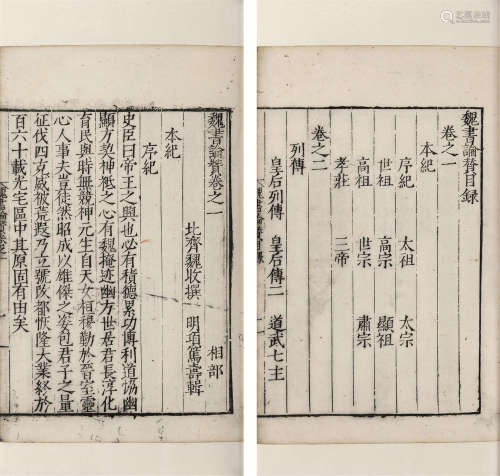 魏書論贊目錄
卷之一
本紀
序紀 太祖 太宗
世祖 高宗 顯祖
高祖 世宗 肅宗
孝莊 三帝
卷之二
列傳
皇后列傳 皇后傳二 道武七王
魏書論贊卷之一
相部
北齊魏收撰 明項篤壽輯
本紀
序紀
史臣曰帝王之興也必有積德累功博利道協幽
顯方契神祇之心有魏掩迹幽方世居君長淳化
育民與時無競神元生自天女桓穆勤於晉室靈
心人事夫豈徒然昭成以雄傑之姿包君子之量
征伐四克威被荒遐乃立號改都恢隆大業終於
百六十載光宅區中其原固有由矣